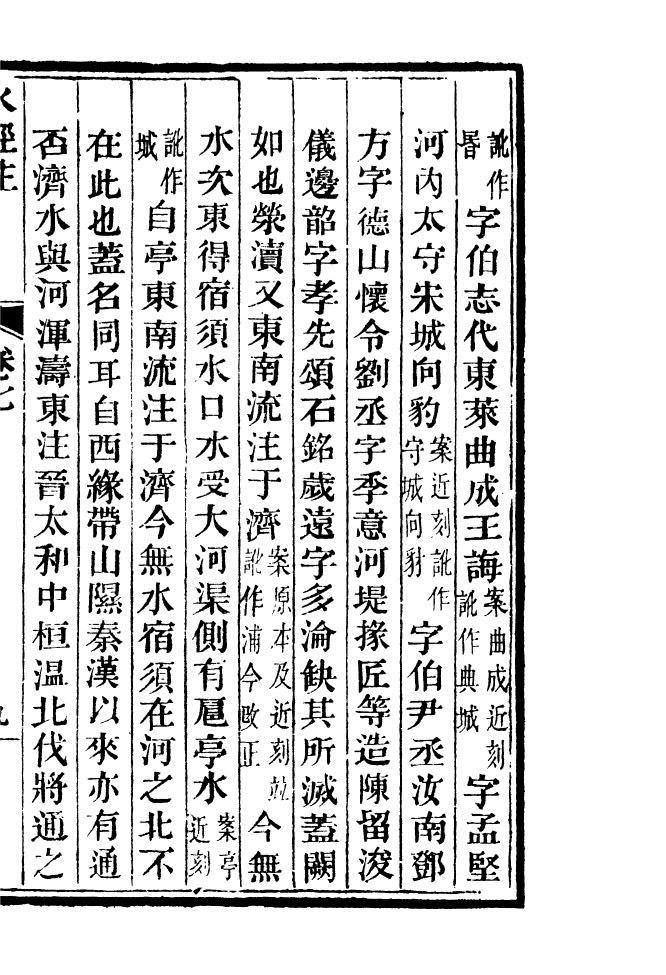 訛作㬱字伯志代東萊曲成王誨案曲成近刻訛作典城字孟堅
河內太守宋城向豹案近刻訛作守城向豺字伯尹丞汝南鄧
方字德山懷令劉丞字季意河堤掾匠等造陳留浚
儀邊韶字孝先頌石銘歲遠字多淪缺其所滅蓋闕
如也滎瀆又東南流注于濟案原本及近刻竝訛作浦今改正今無
水次東得宿須水口水受大河渠側有扈亭水案亭近刻
訛作城自亭東南流注于濟今無水宿須在河之北不
在此也蓋名同耳自西緣帶山隰秦漢以來亦有通
否濟水與河渾濤東注晉太和中桓温北伐將通之
水經注 卷七 九